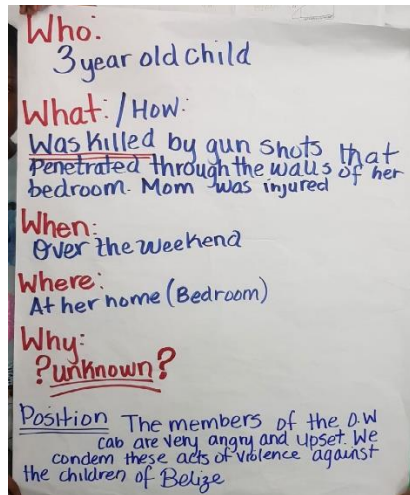 Who:
3 year old child
What:/How:
Was killed by gun shots that
Penetrated through the walls of her
bedroom. Mom was injured
When:
Over the weekend
Where:
At her home (Bedroom)
Why:
?unknown?
Position The members of the O.W
cab are very angry and upset. We
condem these acts of violence against
the children of Belize